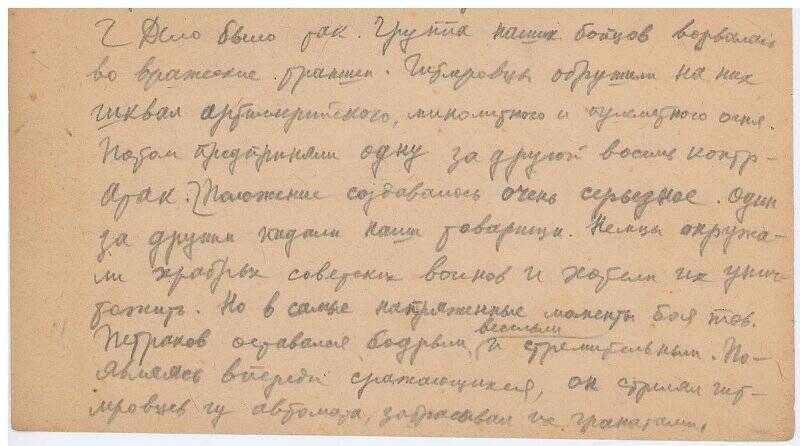 Дело было так. Группа наших бойцов ворвалась
во вражеские траншеи. Гитлеровцы обрушили на них
шквал артиллерийского, минометного и пулеметного огня.
Потом предприняли одну за другой восемь контр-
атак. Положение создавалось очень серьезное. Один
за другим падали наши товарищи. Немцы окружа-
ли храбрых советских воинов и хотели их унич-
тожить. Но в самые напряженные моменты боя тов.
веселым
Петраков оставался бодрым, и стремительным. По-
являясь впереди сражающихся, он стрелял гит-
леровцев из автомата, забрасывал их гранатами,